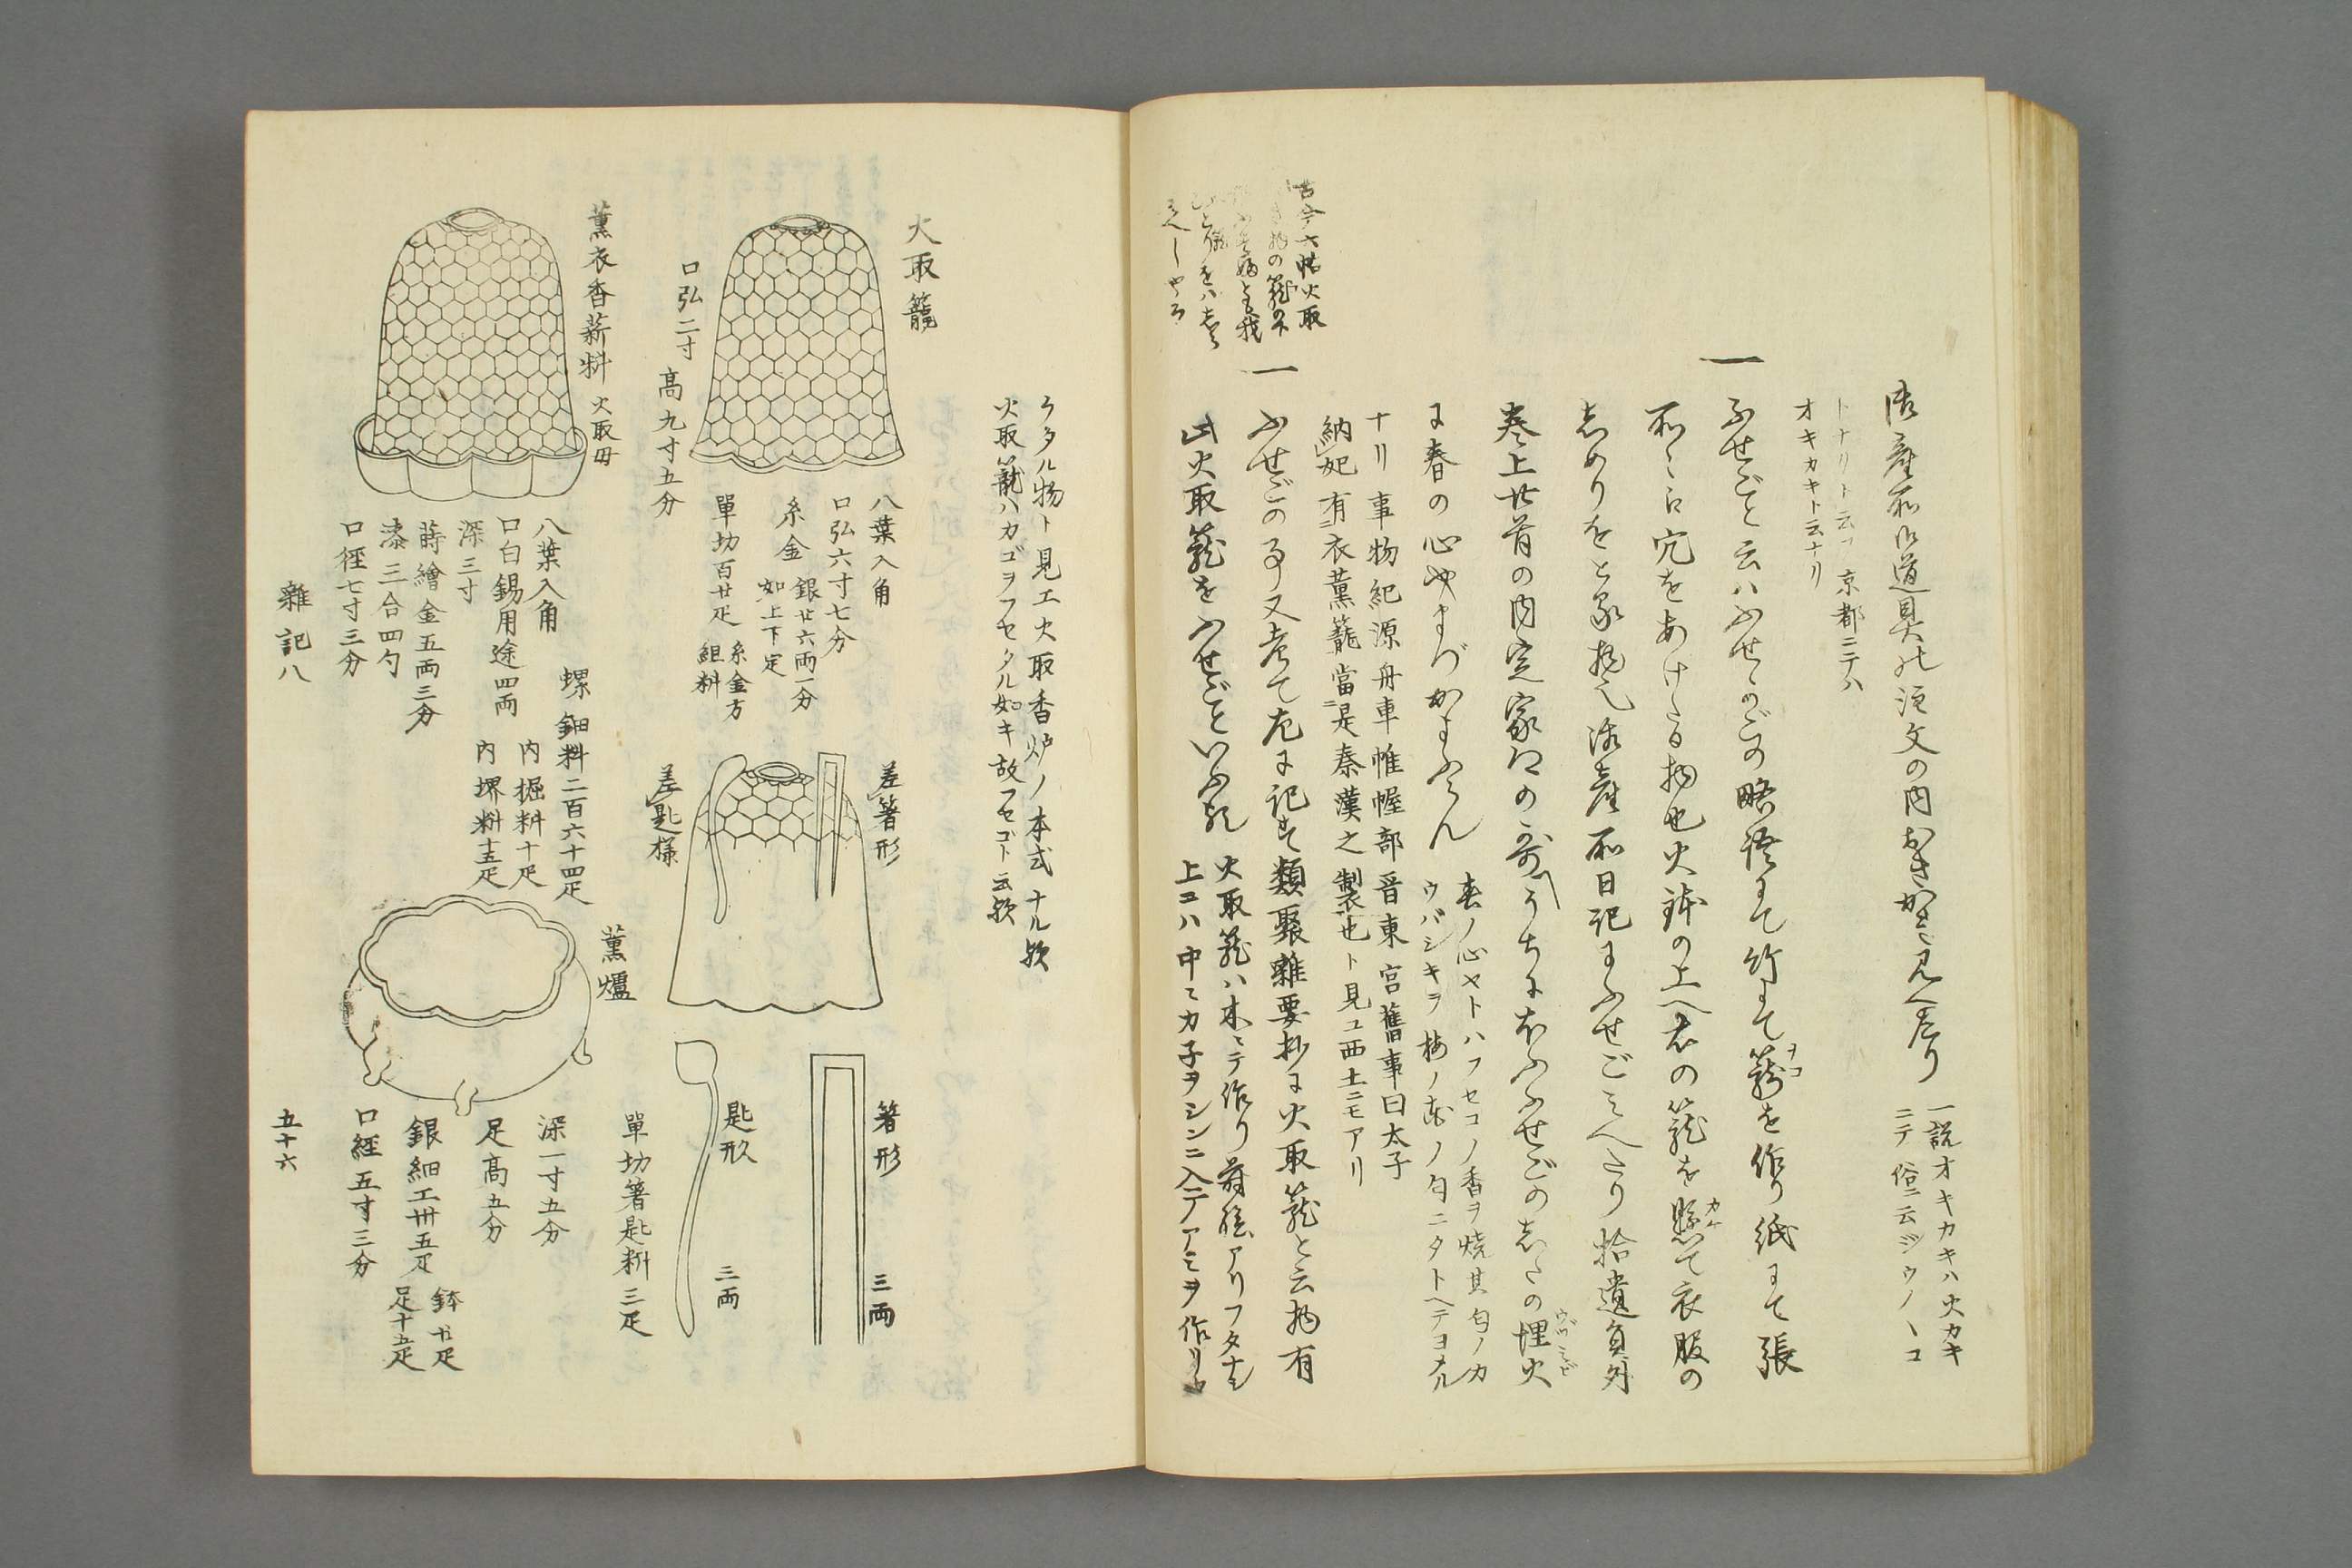 御産所御道具注文の内おきかき見へたり
一説オキカキハ火カキ
ニテ俗ニ云ジウノヽコ
トナリト云フ京都ニテハ
オキカキト云ナリ
一
ふせごと云ハふせかごの略語にて竹にて籠を作り紙にて張
所々に穴をあけたる物也火鉢の上へ右の籠を懸て衣服の
しめりをとる物也御産所日記にふせごみへたり拾遺員外
巻上廿首の内定家卿の哥
うちにほふふせごのしたの埋火
に春の心やまづかよふらん
春ノ心ヤトハフセコノ香ヲ焼其匂ノカ
ウバシキヲ梅ノ花ノ匂ニタトヘテヨメル
ナリ事物紀源舟車帷幄部晋東宮舊事曰太子
納妃有衣薫籠當是秦漢之製也ト見ユ西土ニモアリ
古今六帖火取
一
ふせごの事又考て左に記す類聚雑要抄に火取籠と云物有
此火取籠をふせごといふ歟
火取籠ハ木ニテ作り蒔絵アリフタナシ
上コハ中ニカ子ヲシンニ入テアミヲ作リカ
ケタル物ト見エ火取香炉ノ本式ナル歟
火取籠ハカゴヲフセタル如キ故フセゴト云歟
火取籠
口弘二寸
高九寸五分
八葉入角
口弘六寸七分
糸金
銀廿六両一分
如上下定
單功百廿疋
糸金方
組料
薫衣香薪料
火取母
八葉入角
口白錫用途四両
深三寸
蒔繪金五両三分
漆三合四勺
口徑七寸三分
螺鈿料二百六十四疋
内掘料十疋
内堺料十五疋
差箸形
差匙様
箸形
三両
匙形
三両
單功箸匙料三疋
薫爐
深一寸五分
足高五分
銀細工卅五疋
鉢廿疋
足十五疋
口経五寸三分
雜記八
五十六